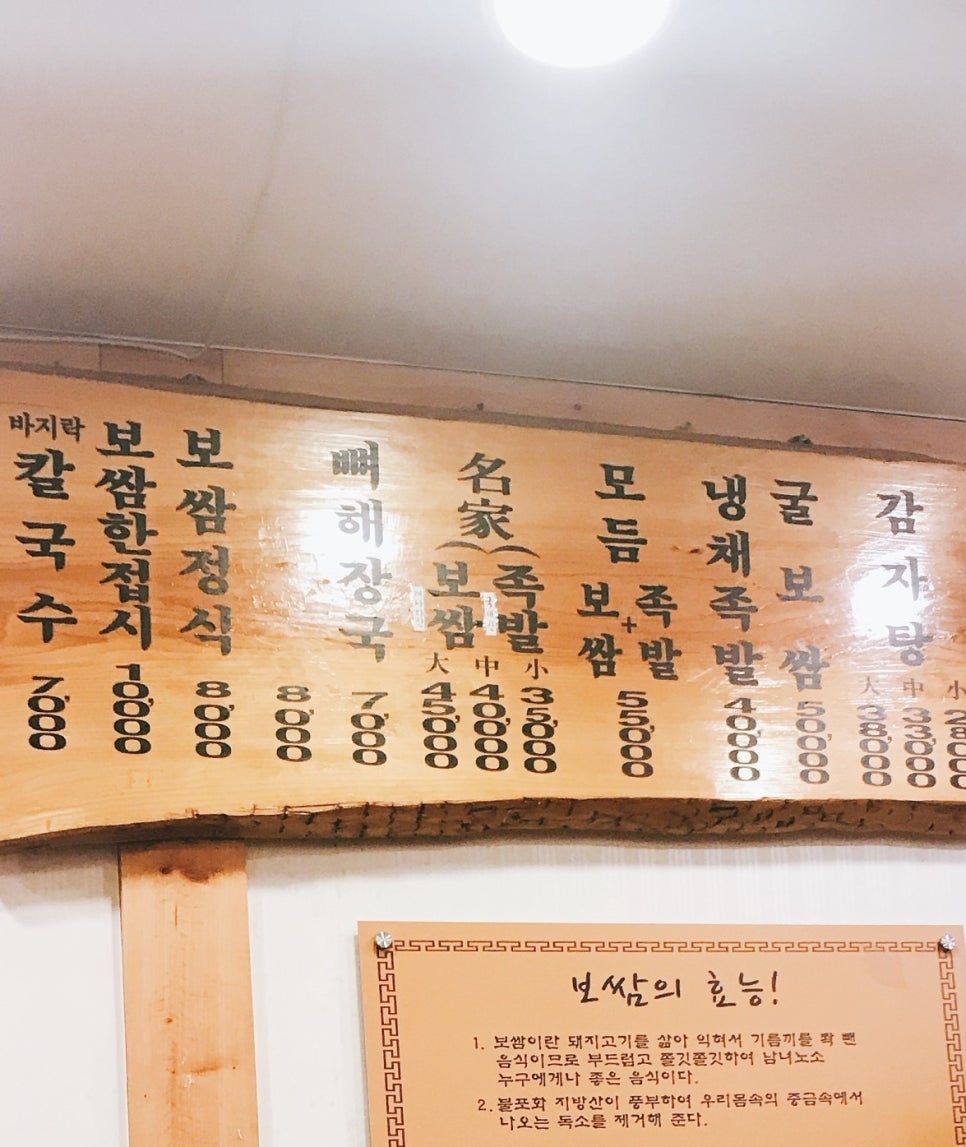 바지락
칼국수
7,000
보쌈한접시
10,000
보쌈정식
8,000
8,000
뼈해장국
7,000
名家
보쌈 족발
大 中 小
45,000 40,000 35,000
모듬
보쌈 + 족발
55,000
냉채족발
40,000
굴보쌈
50,000
감자탕
大 中 小
38,000 33,000 28,000
보쌈의 효능!
1. 보쌈이란 돼지고기를 삶아 익혀서 기름끼를 쫙 뺀
음식이므로 부드럽고 쫄깃쫄깃하여 남녀노소
누구에게나 좋은 음식이다.
2. 불포화 지방산이 풍부하여 우리몸속의 중금속에서
나오는 독소를 제거해 준다.